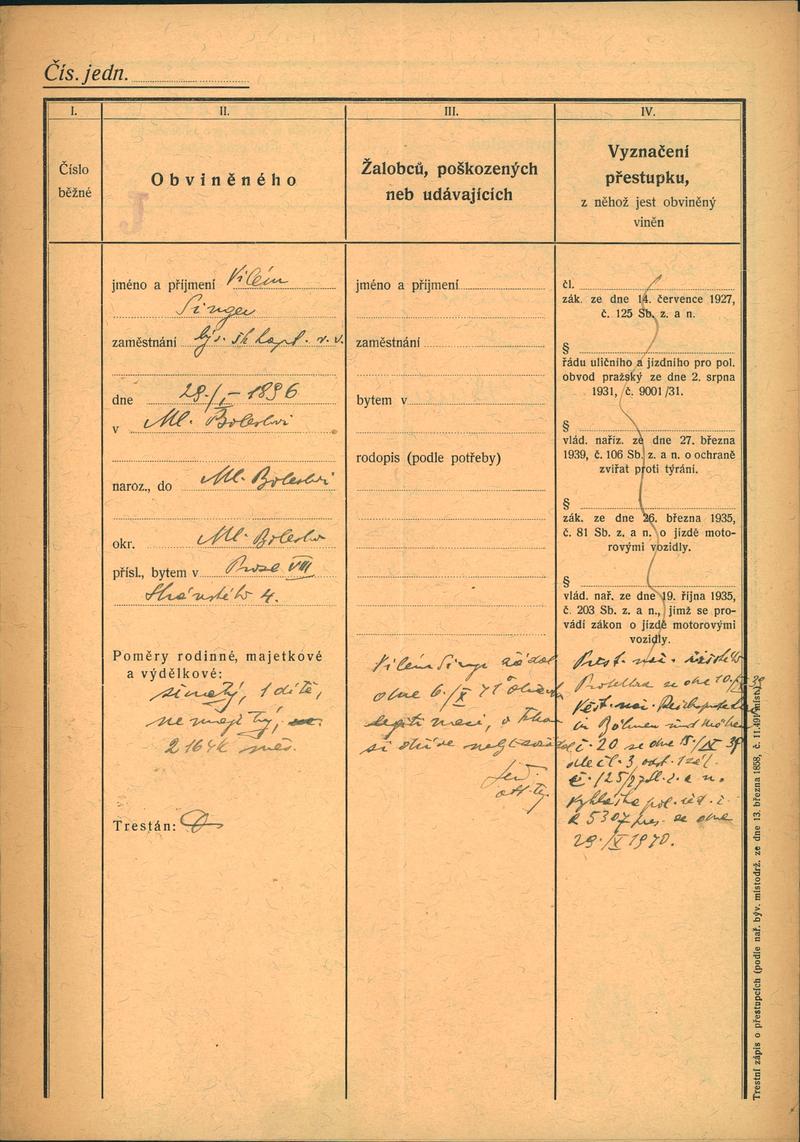 Čís. jedn.
I.
Číslo
běžné
II.
Obviněného
J
jméno a příjmení Vilém
Singer
zaměstnání býv. šk. kapt. v. v.
dne 29./I.- 1896
v Ml. Boleslvi
naroz., do Ml. Boleslvi
okr. Ml. Boleslv
přísl., bytem v Praze VIII
4.
Poměry rodinné, majetkové
a výdělkové:
ženatý, 1 dítě,
nemajetný,
2164K měs.
Trestán:
III.
Žalobců, poškozených
neb udávajících
jméno a příjmení
zaměstnání
bytem v
rodopis (podle potřeby)
Vilém Singer žádal
dne 6./X 41 o
legitimaci, o
si dříve
IV.
Vyznačení
přestupku,
z něhož jest obviněný
viněn
čl.
zák. ze dne 14. července 1927,
č. 125 Sb. z. a n.
§
řádu uličního a jízdního pro pol.
obvod pražský ze dne 2. srpna
1931, č. 9001/31.
§
vlád. naříz. ze dne 27. března
1939, č. 106 Sb. z. a n. o ochraně
zvířat proti týrání.
§
zák. ze dne 26. března 1935,
č. 81 Sb. z. a n. o jízdě moto-
rovými vozidly.
§
vlád. nař. ze dne 19. října 1935,
č. 203 Sb. z. a n., jímž se pro-
vádí zákon o jízdě motorovými
vozidly.
Přest. nař.
Protektora ze dne 10./IX 39
Věst. nař. Reichsprotekt.
in Böhmen und Mähren
č. 20 ze dne 15./IX 39
dle čl. 3, odst. 1 zák.
č. 125/27 Sb. z. a n.
Vyhláška pol. řed. č.
5307 pres. ze dne
29./X 1940.
Trestní zápis o přestupcích (podle nař. býv. místodrž. ze dne 13. března 1858, č. 11.491 míst.)